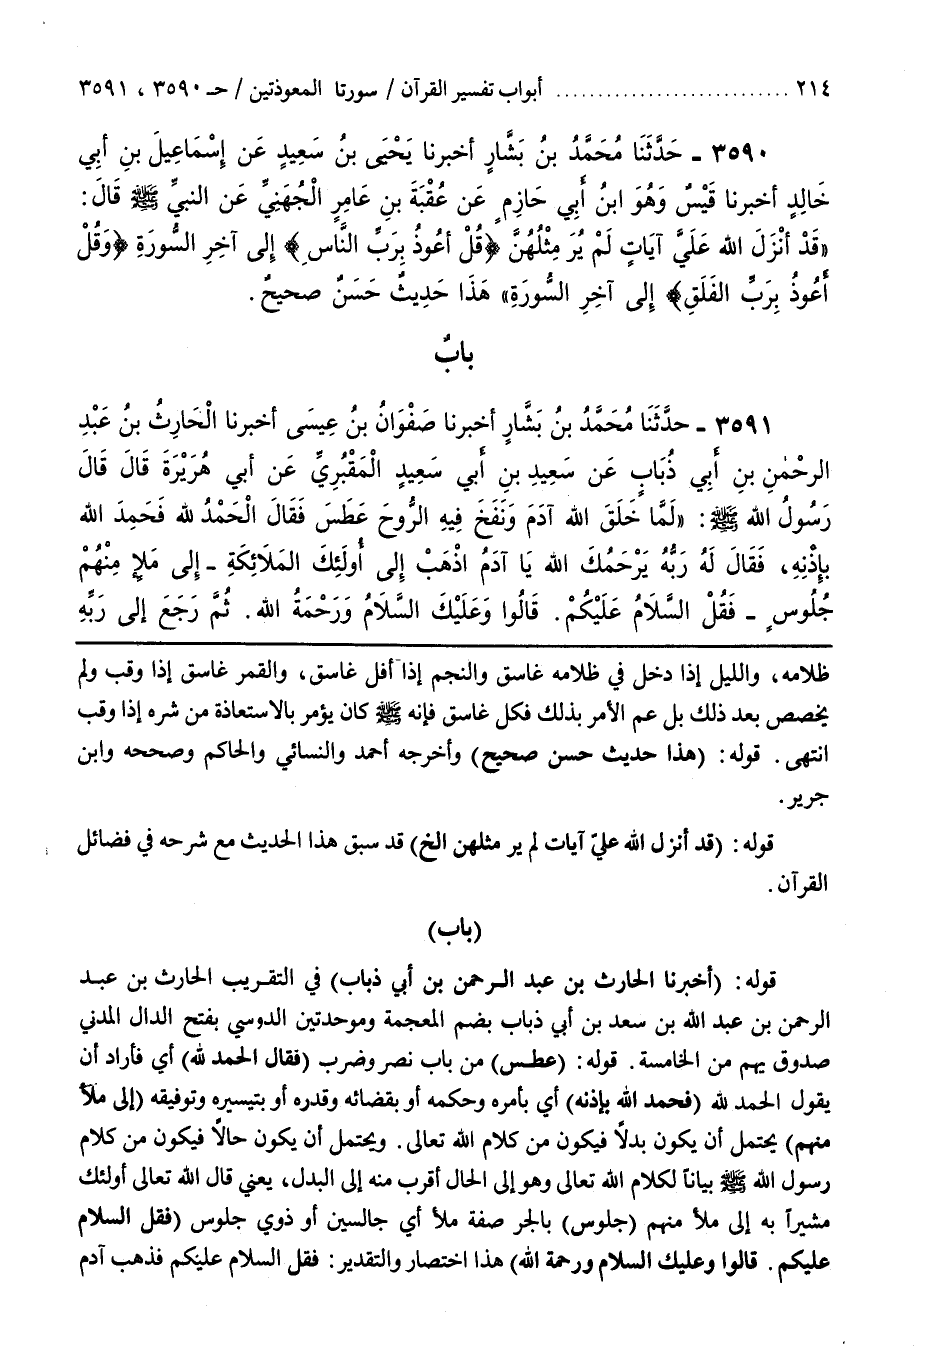 ٢١٤ ............................ أبواب تفسير القرآن / سورتا المعوذتين / حـ ٣٥٩٠ ، ٣٥٩١
٣٥٩٠ ـ حَدَّثَنَا مُحَمَّدُ بنُ بَشَّارٍ أخبرنا يَحْيَى بنُ سَعِيدٍ عَن إِسْمَاعِيلَ بنِ أبِي
خَالِدٍ أخبرنا قَيْسٌ وَهُوَ ابنُ أَبِي حَازِمٍ عَن عُقْبَةَ بنِ عَامِرٍ الْجُهَنِيِّ عَن النبيِّ ﷺ قَالَ:
«قَدْ أنْزَلَ الله عَلَيَّ آيَاتٍ لَمْ يُرَ مِثْلُهُنَّ ﴿قُلْ أعُوذُ بِرَبِّ النَّاسِ﴾ إِلى آخِرِ السُّورَةِ ﴿وَقُلْ
أَعُوذُ بِرَبِّ الفَلَقِ﴾ إِلى آخِرِ السُّورَةِ» هَذَا حَدِيثٌ حَسَنٌ صحيحٌ.
بابٌ
٣٥٩١ ـ حدَّثَنَا مُحَمَّدُ بنُ بَشَّارٍ أخبرنا صَفْوَانُ بنُ عِيسَى أخبرنا الْحَارِثُ بنُ عَبْدِ
الرحْمٰنِ بنِ أَبِي ذُبَابٍ عَن سَعِيدِ بنِ أَبي سَعِيدٍ الْمَقْبُرِيِّ عَن أبي هُرَيْرَةَ قَالَ قَالَ
رَسُولُ الله ﷺ: «لَمَّا خَلَقَ الله آدَمَ وَنَفَخَ فِيهِ الرُّوحَ عَطَسَ فَقَالَ الْحَمْدُ لله فَحَمِدَ الله
بِإِذْنِهِ، فَقَالَ لَهُ رَبُّهُ يَرْحَمُكَ الله يَا آدَمُ اذْهَبْ إِلى أُولَئِكَ المَلَائِكَةِ ـ إِلى مَلإٍ مِنْهُمْ
جُلُوسٍ ـ فَقُلْ السَّلَامُ عَلَيْكُمْ. قَالُوا وَعَلَيْكَ السَّلَامُ وَرَحْمَةُ الله. ثُمَّ رَجَعَ إلى رَبِّهِ
ظلامه، والليل إذا دخل في ظلامه غاسق والنجم إذا أفل غاسق، والقمر غاسق إذا وقب ولم
يخصص بعد ذلك بل عم الأمر بذلك فكل غاسق فإنه ﷺ كان يؤمر بالاستعاذة من شره إذا وقب
انتهى. قوله: (هذا حديث حسن صحيح) وأخرجه أحمد والنسائي والحاكم وصححه وابن
جرير.
قوله: (قد أنزل الله عليّ آيات لم ير مثلهن الخ) قد سبق هذا الحديث مع شرحه في فضائل
القرآن.
(باب)
قوله: (أخبرنا الحارث بن عبد الرحمن بن أبي ذباب) في التقريب الحارث بن عبد
الرحمن بن عبد الله بن سعد بن أبي ذباب بضم المعجمة وموحدتين الدوسي بفتح الدال المدني
صدوق يهم من الخامسة. قوله: (عطس) من باب نصر وضرب (فقال الحمد لله) أي فأراد أن
يقول الحمد لله (فحمد الله بإذنه) أي بأمره وحكمه أو بقضائه وقدره أو بتيسيره وتوفيقه (إلى ملأ
منهم) يحتمل أن يكون بدلاً فيكون من كلام الله تعالى. ويحتمل أن يكون حالاً فيكون من كلام
رسول الله ﷺ بياناً لكلام الله تعالى وهو إلى الحال أقرب منه إلى البدل، يعني قال الله تعالى أولئك
مشيراً به إلى ملأ منهم (جلوس) بالجر صفة ملأ أي جالسين أو ذوي جلوس (فقل السلام
عليكم. قالوا وعليك السلام ورحمة الله) هذا اختصار والتقدير: فقل السلام عليكم فذهب آدم